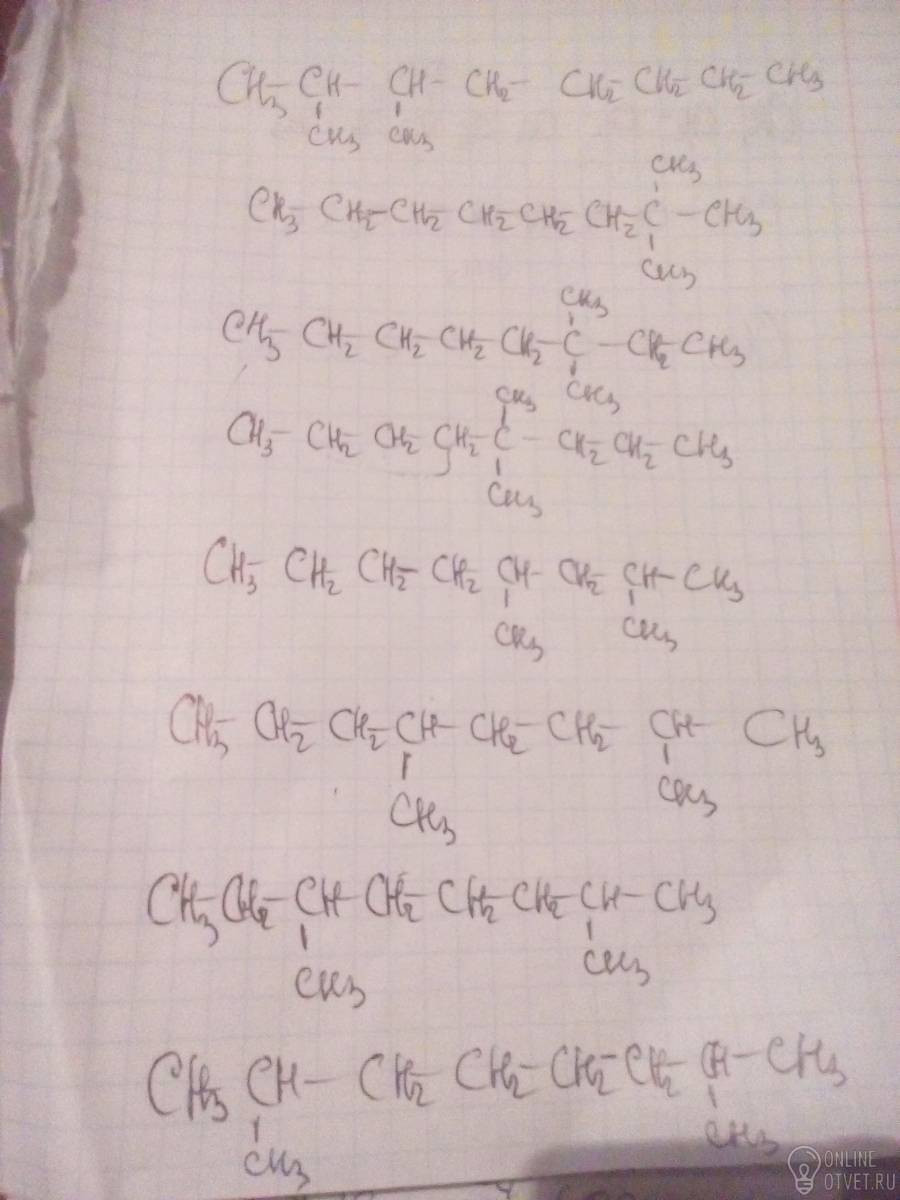 CH₃- CH- CH- CH₂- CH₂- CH₂- CH₂- CH₃
CH₃ CH₃
CH₃
CH₃- CH₂- CH₂- CH₂- CH₂- CH₂- C - CH₃
CH₃
CH₃
CH₃- CH₂- CH₂- CH₂- CH₂- C - CH₂- CH₃
CH₃
CH₃
CH₃- CH₂- CH₂- CH₂- C - CH₂- CH₂- CH₃
CH₃
CH₃- CH₂- CH₂- CH₂- CH- CH₂- CH- CH₃
CH₃ CH₃
CH₃- CH₂- CH₂- CH- CH₂- CH₂- CH- CH₃
CH₃ CH₃
CH₃- CH₂- CH- CH₂- CH₂- CH₂- CH- CH₃
CH₃ CH₃
CH₃- CH- CH₂- CH₂- CH₂- CH₂- CH- CH₃
CH₃ CH₃
ONLINE
OTVET.RU